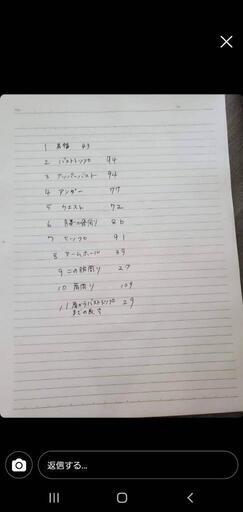 1 肩幅 43
2 バストトップ 94
3 アンダーバスト 94
4 アンダー 77
5 ウエスト 72
6 腰回り 86
7 ヒップ 91
8 アームホール 39
9 二の腕周り 27
10 肩周り 109
11 肩からバストトップ 29
までの長さ
返信する...